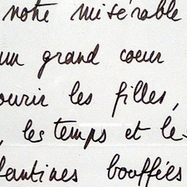 notre misérable
un grand cœur
ourir les filles,
, les temps et le
fantines bouffées